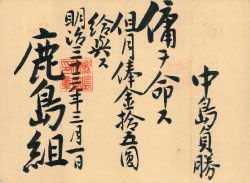 中島員勝
傭ヲ命ス
但月俸金拾五圓
給與ス
明治三十三年三月一日
鹿島組